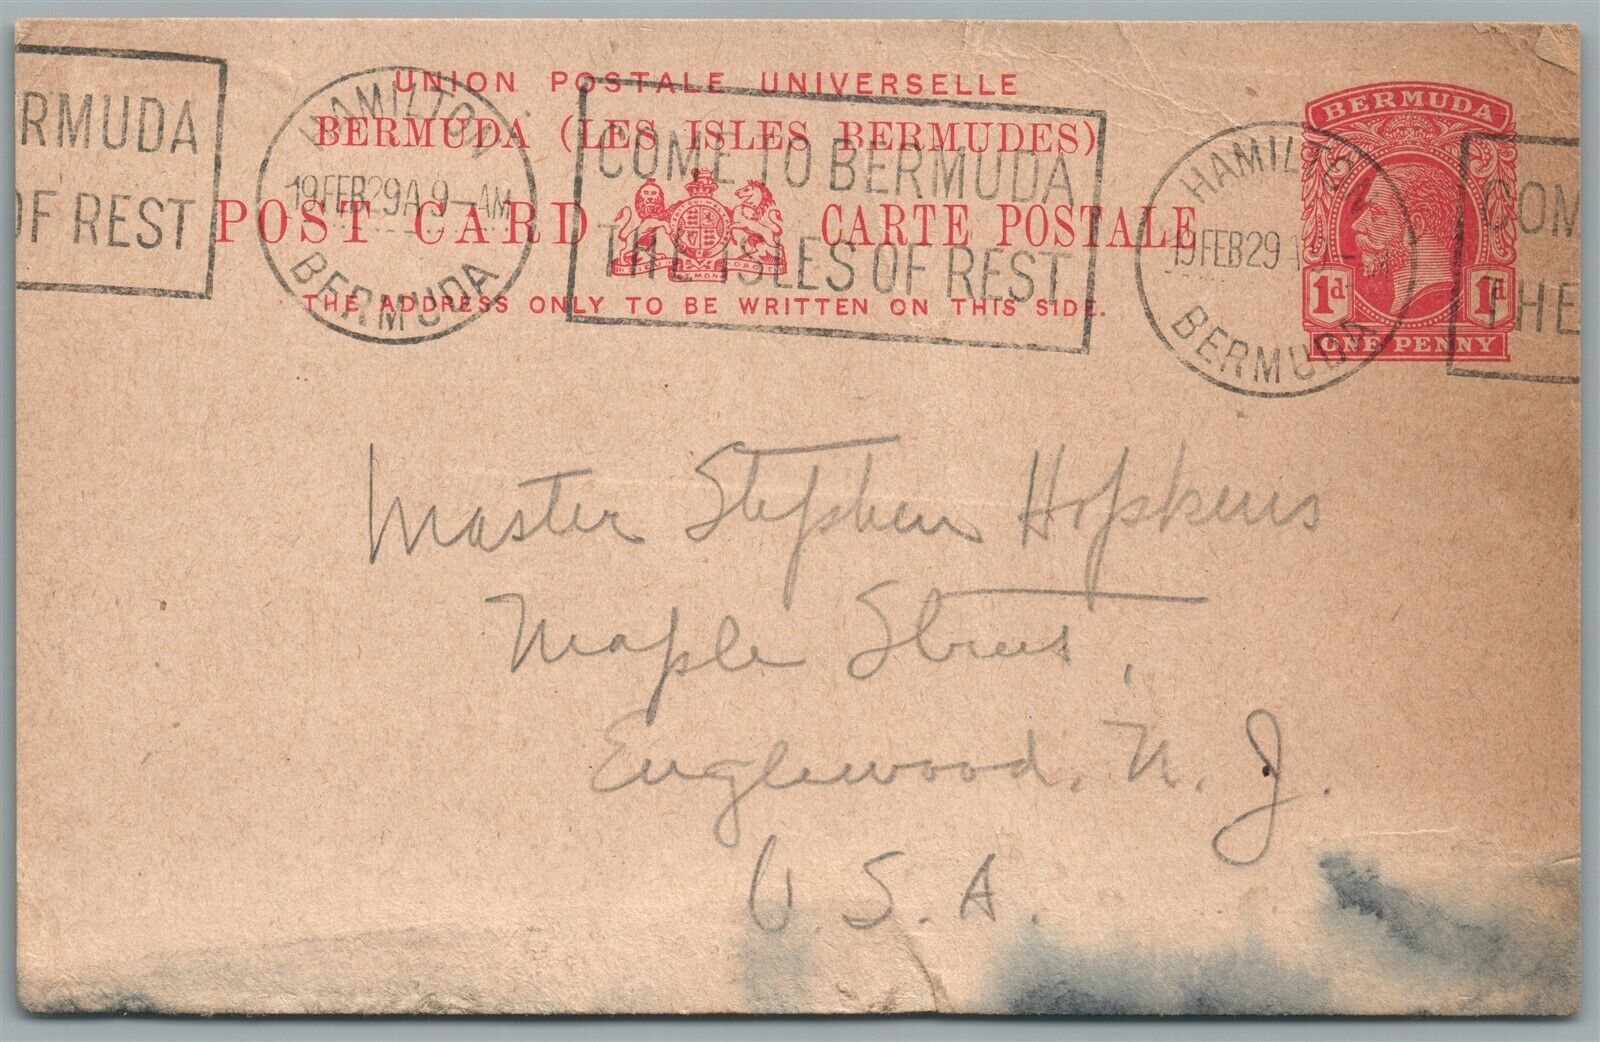 UNION POSTALE UNIVERSELLE
BERMUDA (LES ISLES BERMUDES)
POST CARD CARTE POSTALE
THE ADDRESS ONLY TO BE WRITTEN ON THIS SIDE.
BERMUDA
1d 1d
ONE PENNY
RMUDA
OF REST
HAMILTON
19 FEB 29 A 9–AM
BERMUDA
COME TO BERMUDA
THE ISLES OF REST
HAMILTON
19 FEB 29 A 9–AM
BERMUDA
COM
THE
Master Stephen Hopkins
Maple Street,
Englewood, N. J.
U. S. A.